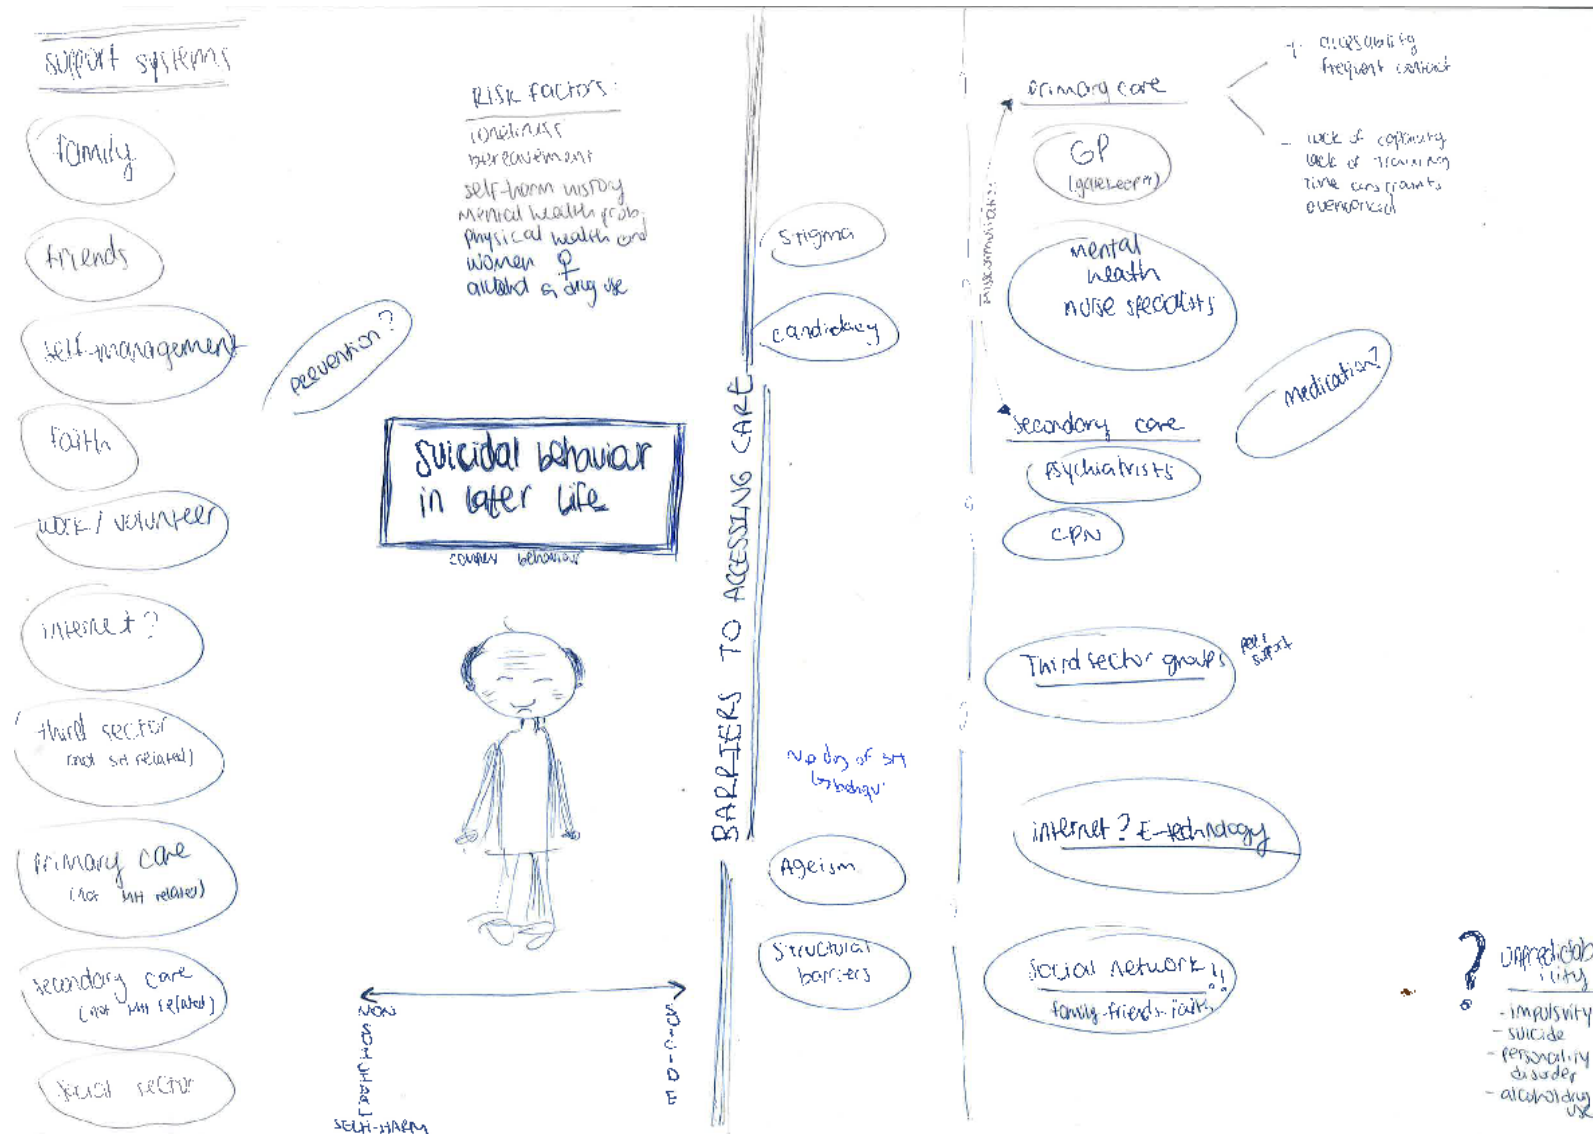 support systems
family
friends
self-management
faith
work / volunteer
internet?
third sector
(not SH related)
primary care
(not MH related)
secondary care
(not MH related)
social sector
prevention?
Risk factors:
loneliness
bereavement
self-harm history
mental health prob.
physical health cond
women ♀
alcohol & drug use
suicidal behaviour
in later life
complex behaviour
NON
SELF-HARM
SUICIDE
BARRIERS TO ACCESSING CARE
stigma
candidacy
No of SH
Ageism
structural
barriers
primary care
+ accessability
frequent contact
- lack of continuity
lack of training
time constraints
overworked
GP
(gatekeeper)
mental
health
nurse specialists
medication?
secondary care
psychiatrists
CPN
Third sector groups
peer
support
internet? E-technology
social network!!
family-friends-faith
? unpredictab
ility
- impulsivity
- suicide
- personality
disorder
- alcohol drug
use